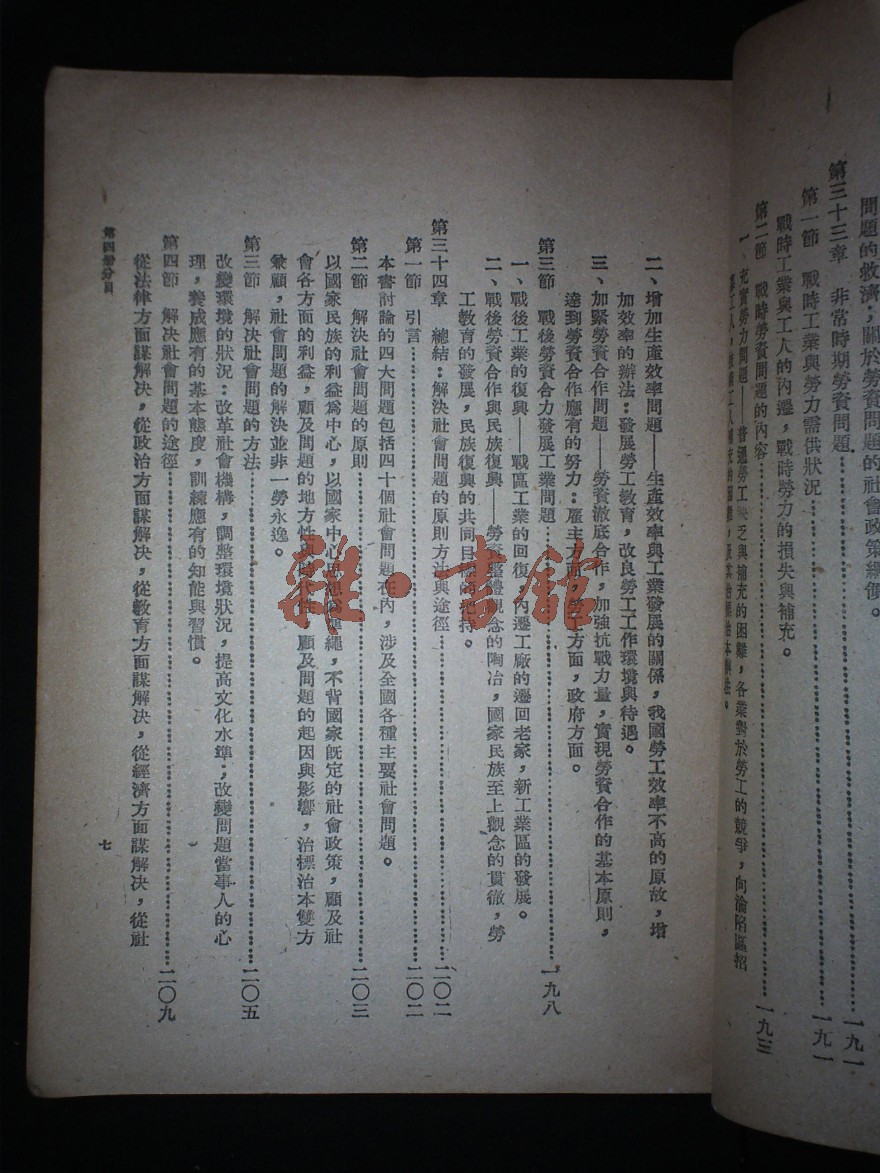 問題的救濟；關於勞資問題的社會政策綱領。
第三十三章　非常時期勞資問題……一九一
第一節　戰時工業與勞力需供狀況……一九一
戰時工業與工人的內遷，戰時勞力的損失與補充。
第二節　戰時勞資問題的內容……一九三
一、充實勞力問題——普通勞工缺乏與補充的困難，各業對於勞工的競爭，向淪陷區招
二、增加生產效率問題——生產效率與工業發展的關係，我國勞工效率不高的原故，增
加效率的辦法：發展勞工教育，改良勞工工作環境與待遇。
三、加緊勞資合作問題——勞資澈底合作，加強抗戰力量，實現勞資合作的基本原則，
達到勞資合作應有的努力：雇主方面，勞工方面，政府方面。
第三節　戰後勞資合力發展工業問題……一九八
一、戰後工業的復興——戰區工業的回復，內遷工廠的遷回老家，新工業區的發展。
二、戰後勞資合作與民族復興——勞資整體觀念的陶冶，國家民族至上觀念的貫徹，勞
工教育的發展，民族復興的共同目標的維持。
第三十四章　總結：解決社會問題的原則方法與途徑……二〇二
第一節　引言……二〇二
本書討論的四大問題包括四十個社會問題在內，涉及全國各種主要社會問題。
第二節　解決社會問題的原則……二〇三
以國家民族的利益為中心，以國家中心思想為準繩，不背國家既定的社會政策，顧及社
會各方面的利益，顧及問題的地方性與時代性，顧及問題的起因與影響，治標治本雙方
兼顧，社會問題的解決並非一勞永逸。
第三節　解決社會問題的方法……二〇五
改變環境的狀況：改革社會機構，調整環境狀況，提高文化水準；改變問題當事人的心
理，養成應有的基本態度，訓練應有的知能與習慣。
第四節　解決社會問題的途徑……二〇九
從法律方面謀解決，從政治方面謀解決，從教育方面謀解決，從經濟方面謀解決，從社
第四册分目
七
雜·書館